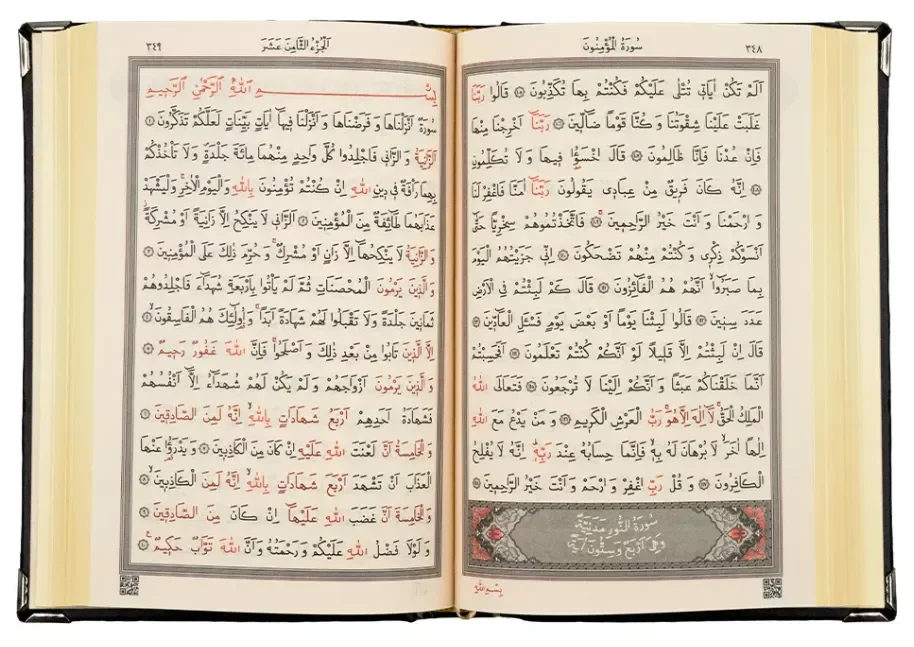 ٣٤٨ سُورَةُ الْمُؤْمِنُونَ
اَلَمْ تَكُنْ اٰيَاتٖي تُتْلٰى عَلَيْكُمْ فَكُنْتُمْ بِهَا تُكَذِّبُونَ ١٠٥ قَالُوا رَبَّنَا
غَلَبَتْ عَلَيْنَا شِقْوَتُنَا وَكُنَّا قَوْمًا ضَٓالّٖينَ ١٠٦ رَبَّنَٓا اَخْرِجْنَا مِنْهَا
فَاِنْ عُدْنَا فَاِنَّا ظَالِمُونَ ١٠٧ قَالَ اخْسَؤُ۫ا فٖيهَا وَلَا تُكَلِّمُونِ
١٠٨ اِنَّهُ كَانَ فَرٖيقٌ مِنْ عِبَادٖي يَقُولُونَ رَبَّنَٓا اٰمَنَّا فَاغْفِرْ لَنَا
وَارْحَمْنَا وَاَنْتَ خَيْرُ الرَّاحِمٖينَ ١٠٩ فَاتَّخَذْتُمُوهُمْ سِخْرِيًّا حَتّٰٓى
اَنْسَوْكُمْ ذِكْرٖي وَكُنْتُمْ مِنْهُمْ تَضْحَكُونَ ١١٠ اِنّٖي جَزَيْتُهُمُ الْيَوْمَ
بِمَا صَبَرُٓوا اَنَّهُمْ هُمُ الْفَٓائِزُونَ ١١١ قَالَ كَمْ لَبِثْتُمْ فِي الْاَرْضِ
عَدَدَ سِنٖينَ ١١٢ قَالُوا لَبِثْنَا يَوْمًا اَوْ بَعْضَ يَوْمٍ فَسْـَٔلِ الْعَٓادّٖينَ ١١٣
قَالَ اِنْ لَبِثْتُمْ اِلَّا قَلٖيلًا لَوْ اَنَّكُمْ كُنْتُمْ تَعْلَمُونَ ١١٤ اَفَحَسِبْتُمْ
اَنَّمَا خَلَقْنَاكُمْ عَبَثًا وَاَنَّكُمْ اِلَيْنَا لَا تُرْجَعُونَ ١١٥ فَتَعَالَى اللّٰهُ
الْمَلِكُ الْحَقُّ لَٓا اِلٰهَ اِلَّا هُوَ رَبُّ الْعَرْشِ الْكَرٖيمِ ١١٦ وَمَنْ يَدْعُ مَعَ اللّٰهِ
اِلٰهًا اٰخَرَ لَا بُرْهَانَ لَهُ بِهٖ فَاِنَّمَا حِسَابُهُ عِنْدَ رَبِّهٖ اِنَّهُ لَا يُفْلِحُ
الْكَافِرُونَ ١١٧ وَقُلْ رَبِّ اغْفِرْ وَارْحَمْ وَاَنْتَ خَيْرُ الرَّاحِمٖينَ ١١٨
سُورَةُ النُّورِ مَدَنِيَّةٌ
وَهِيَ اَرْبَعٌ وَسِتُّونَ اٰيَةً
بِسْمِ اللّٰهِ
اَلْجُزْءُ الثَّامِنَ عَشَرَ ٣٤٩
بِسْمِ اللّٰهِ الرَّحْمٰنِ الرَّحٖيمِ
سُورَةٌ اَنْزَلْنَاهَا وَفَرَضْنَاهَا وَاَنْزَلْنَا فٖيهَٓا اٰيَاتٍ بَيِّنَاتٍ لَعَلَّكُمْ تَذَكَّرُونَ ١
اَلزَّانِيَةُ وَالزَّانٖي فَاجْلِدُوا كُلَّ وَاحِدٍ مِنْهُمَا مِائَةَ جَلْدَةٍ وَلَا تَأْخُذْكُمْ
بِهِمَا رَأْفَةٌ فٖي دٖينِ اللّٰهِ اِنْ كُنْتُمْ تُؤْمِنُونَ بِاللّٰهِ وَالْيَوْمِ الْاٰخِرِ وَلْيَشْهَدْ
عَذَابَهُمَا طَٓائِفَةٌ مِنَ الْمُؤْمِنٖينَ ٢ اَلزَّانٖي لَا يَنْكِحُ اِلَّا زَانِيَةً اَوْ مُشْرِكَةً
وَالزَّانِيَةُ لَا يَنْكِحُهَٓا اِلَّا زَانٍ اَوْ مُشْرِكٌ وَحُرِّمَ ذٰلِكَ عَلَى الْمُؤْمِنٖينَ ٣
وَالَّذٖينَ يَرْمُونَ الْمُحْصَنَاتِ ثُمَّ لَمْ يَأْتُوا بِاَرْبَعَةِ شُهَدَٓاءَ فَاجْلِدُوهُمْ
ثَمَانٖينَ جَلْدَةً وَلَا تَقْبَلُوا لَهُمْ شَهَادَةً اَبَدًا وَاُو۬لٰٓئِكَ هُمُ الْفَاسِقُونَ ٤
اِلَّا الَّذٖينَ تَابُوا مِنْ بَعْدِ ذٰلِكَ وَاَصْلَحُوا فَاِنَّ اللّٰهَ غَفُورٌ رَحٖيمٌ ٥
وَالَّذٖينَ يَرْمُونَ اَزْوَاجَهُمْ وَلَمْ يَكُنْ لَهُمْ شُهَدَٓاءُ اِلَّٓا اَنْفُسُهُمْ
فَشَهَادَةُ اَحَدِهِمْ اَرْبَعُ شَهَادَاتٍ بِاللّٰهِ اِنَّهُ لَمِنَ الصَّادِقٖينَ ٦
وَالْخَامِسَةُ اَنَّ لَعْنَتَ اللّٰهِ عَلَيْهِ اِنْ كَانَ مِنَ الْكَاذِبٖينَ ٧ وَيَدْرَؤُ۬ا عَنْهَا
الْعَذَابَ اَنْ تَشْهَدَ اَرْبَعَ شَهَادَاتٍ بِاللّٰهِ اِنَّهُ لَمِنَ الْكَاذِبٖينَ ٨
وَالْخَامِسَةَ اَنَّ غَضَبَ اللّٰهِ عَلَيْهَٓا اِنْ كَانَ مِنَ الصَّادِقٖينَ ٩
وَلَوْلَا فَضْلُ اللّٰهِ عَلَيْكُمْ وَرَحْمَتُهُ وَاَنَّ اللّٰهَ تَوَّابٌ حَكٖيمٌ ١٠